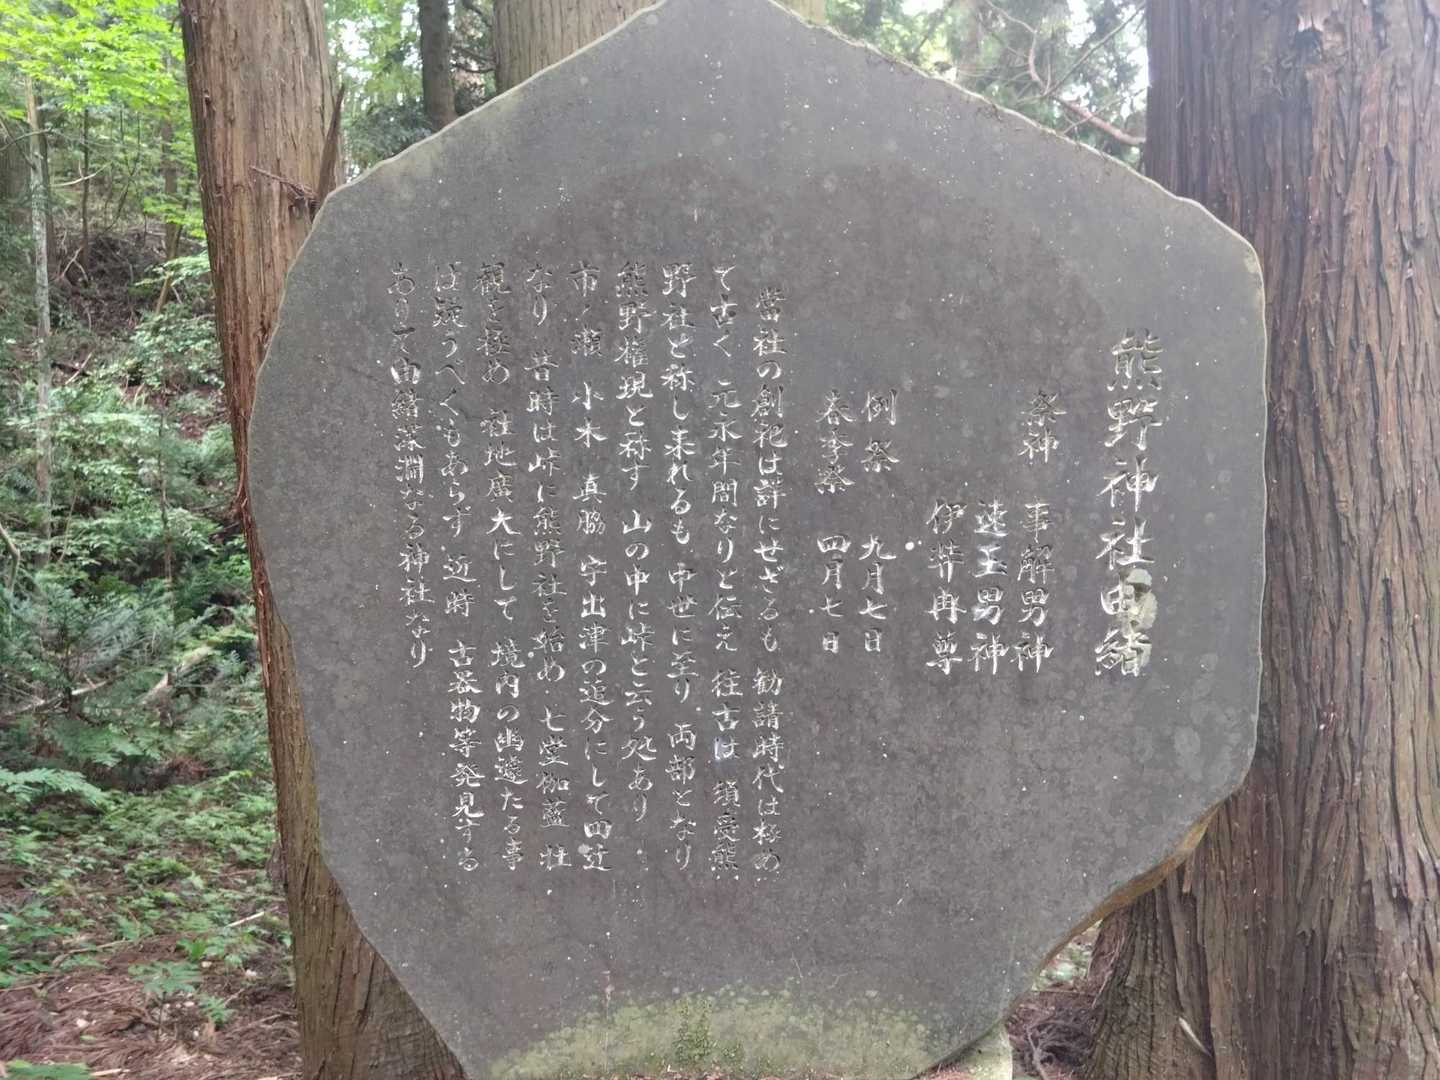 熊野神社由緒
祭神 事解男神
速玉男神
伊弉冉尊
例祭 九月七日
春季祭 四月七日
當社の創祀は詳にせざるも 勧請時代は極め
て古く 元永年間なりと伝え 往古は 須曼熊
野社と称し来れるも 中世に至り 両部となり
熊野権現と称す 山の中に峠と云う処あり
市ノ瀬 小木 真脇 宇出津の追分にして四辻
なり 昔時は峠に熊野社を始め 七堂伽藍 壮
観を極め 社地廣大にして 境内の幽邃たる事
は疑うべくもあらず 近時 古器物等発見する
ありて由緒深淵なる神社なり